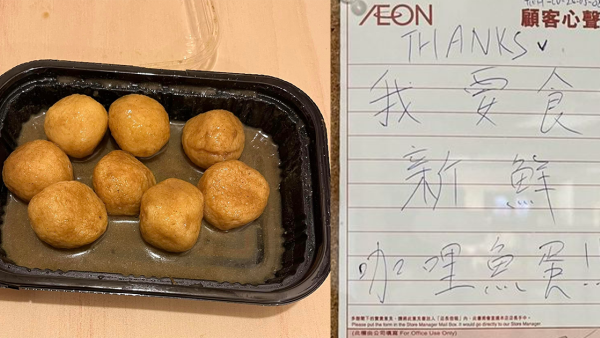 AEON
顧客心聲
THANKS
我要食
新鮮
咖哩魚蛋!!
Please put the form in the Store Manager Mail Box. It would go directly to our Store Manager.
(此欄由公司填寫 For Office Use Only)